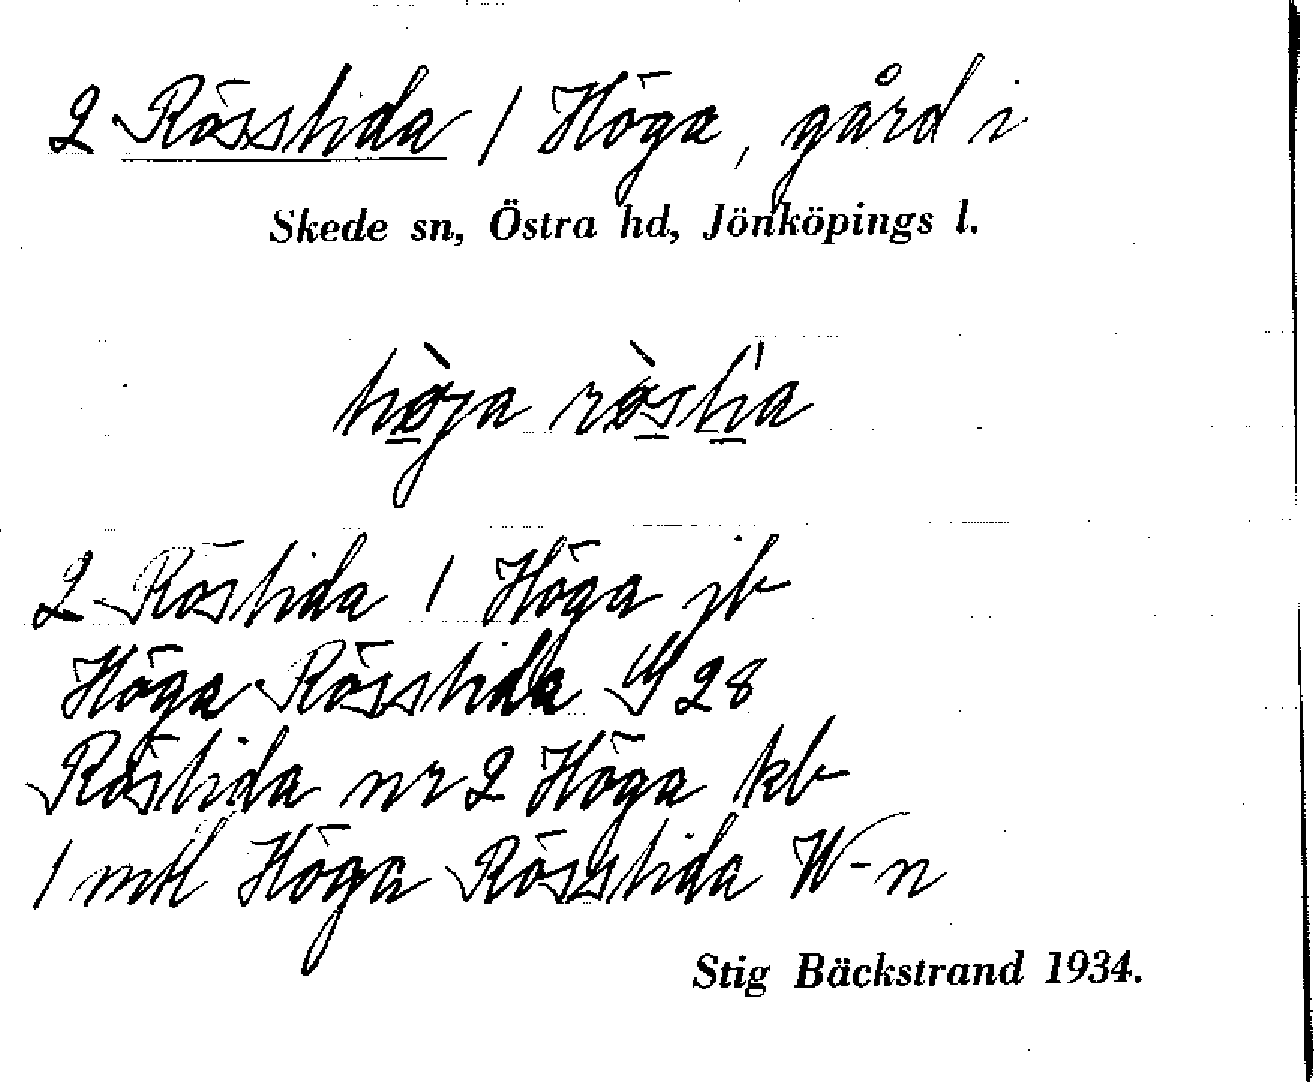 2 Rösstida 1 Höga, gård i
Skede sn, Östra hd, Jönköpings l.
höja röstia
2 Röstida 1 Höga jb
Höga Rösstida 28
Röstida nr 2 Höga kb
1 mtl Höga Rösstida W-n
Stig Bäckstrand 1934.